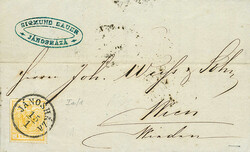 SIGMUND BAUER
JÁNOSHÁZA
Herrn Joh. Weiß & Sohn
Wien
Wieden
JÁNOSHÁZA